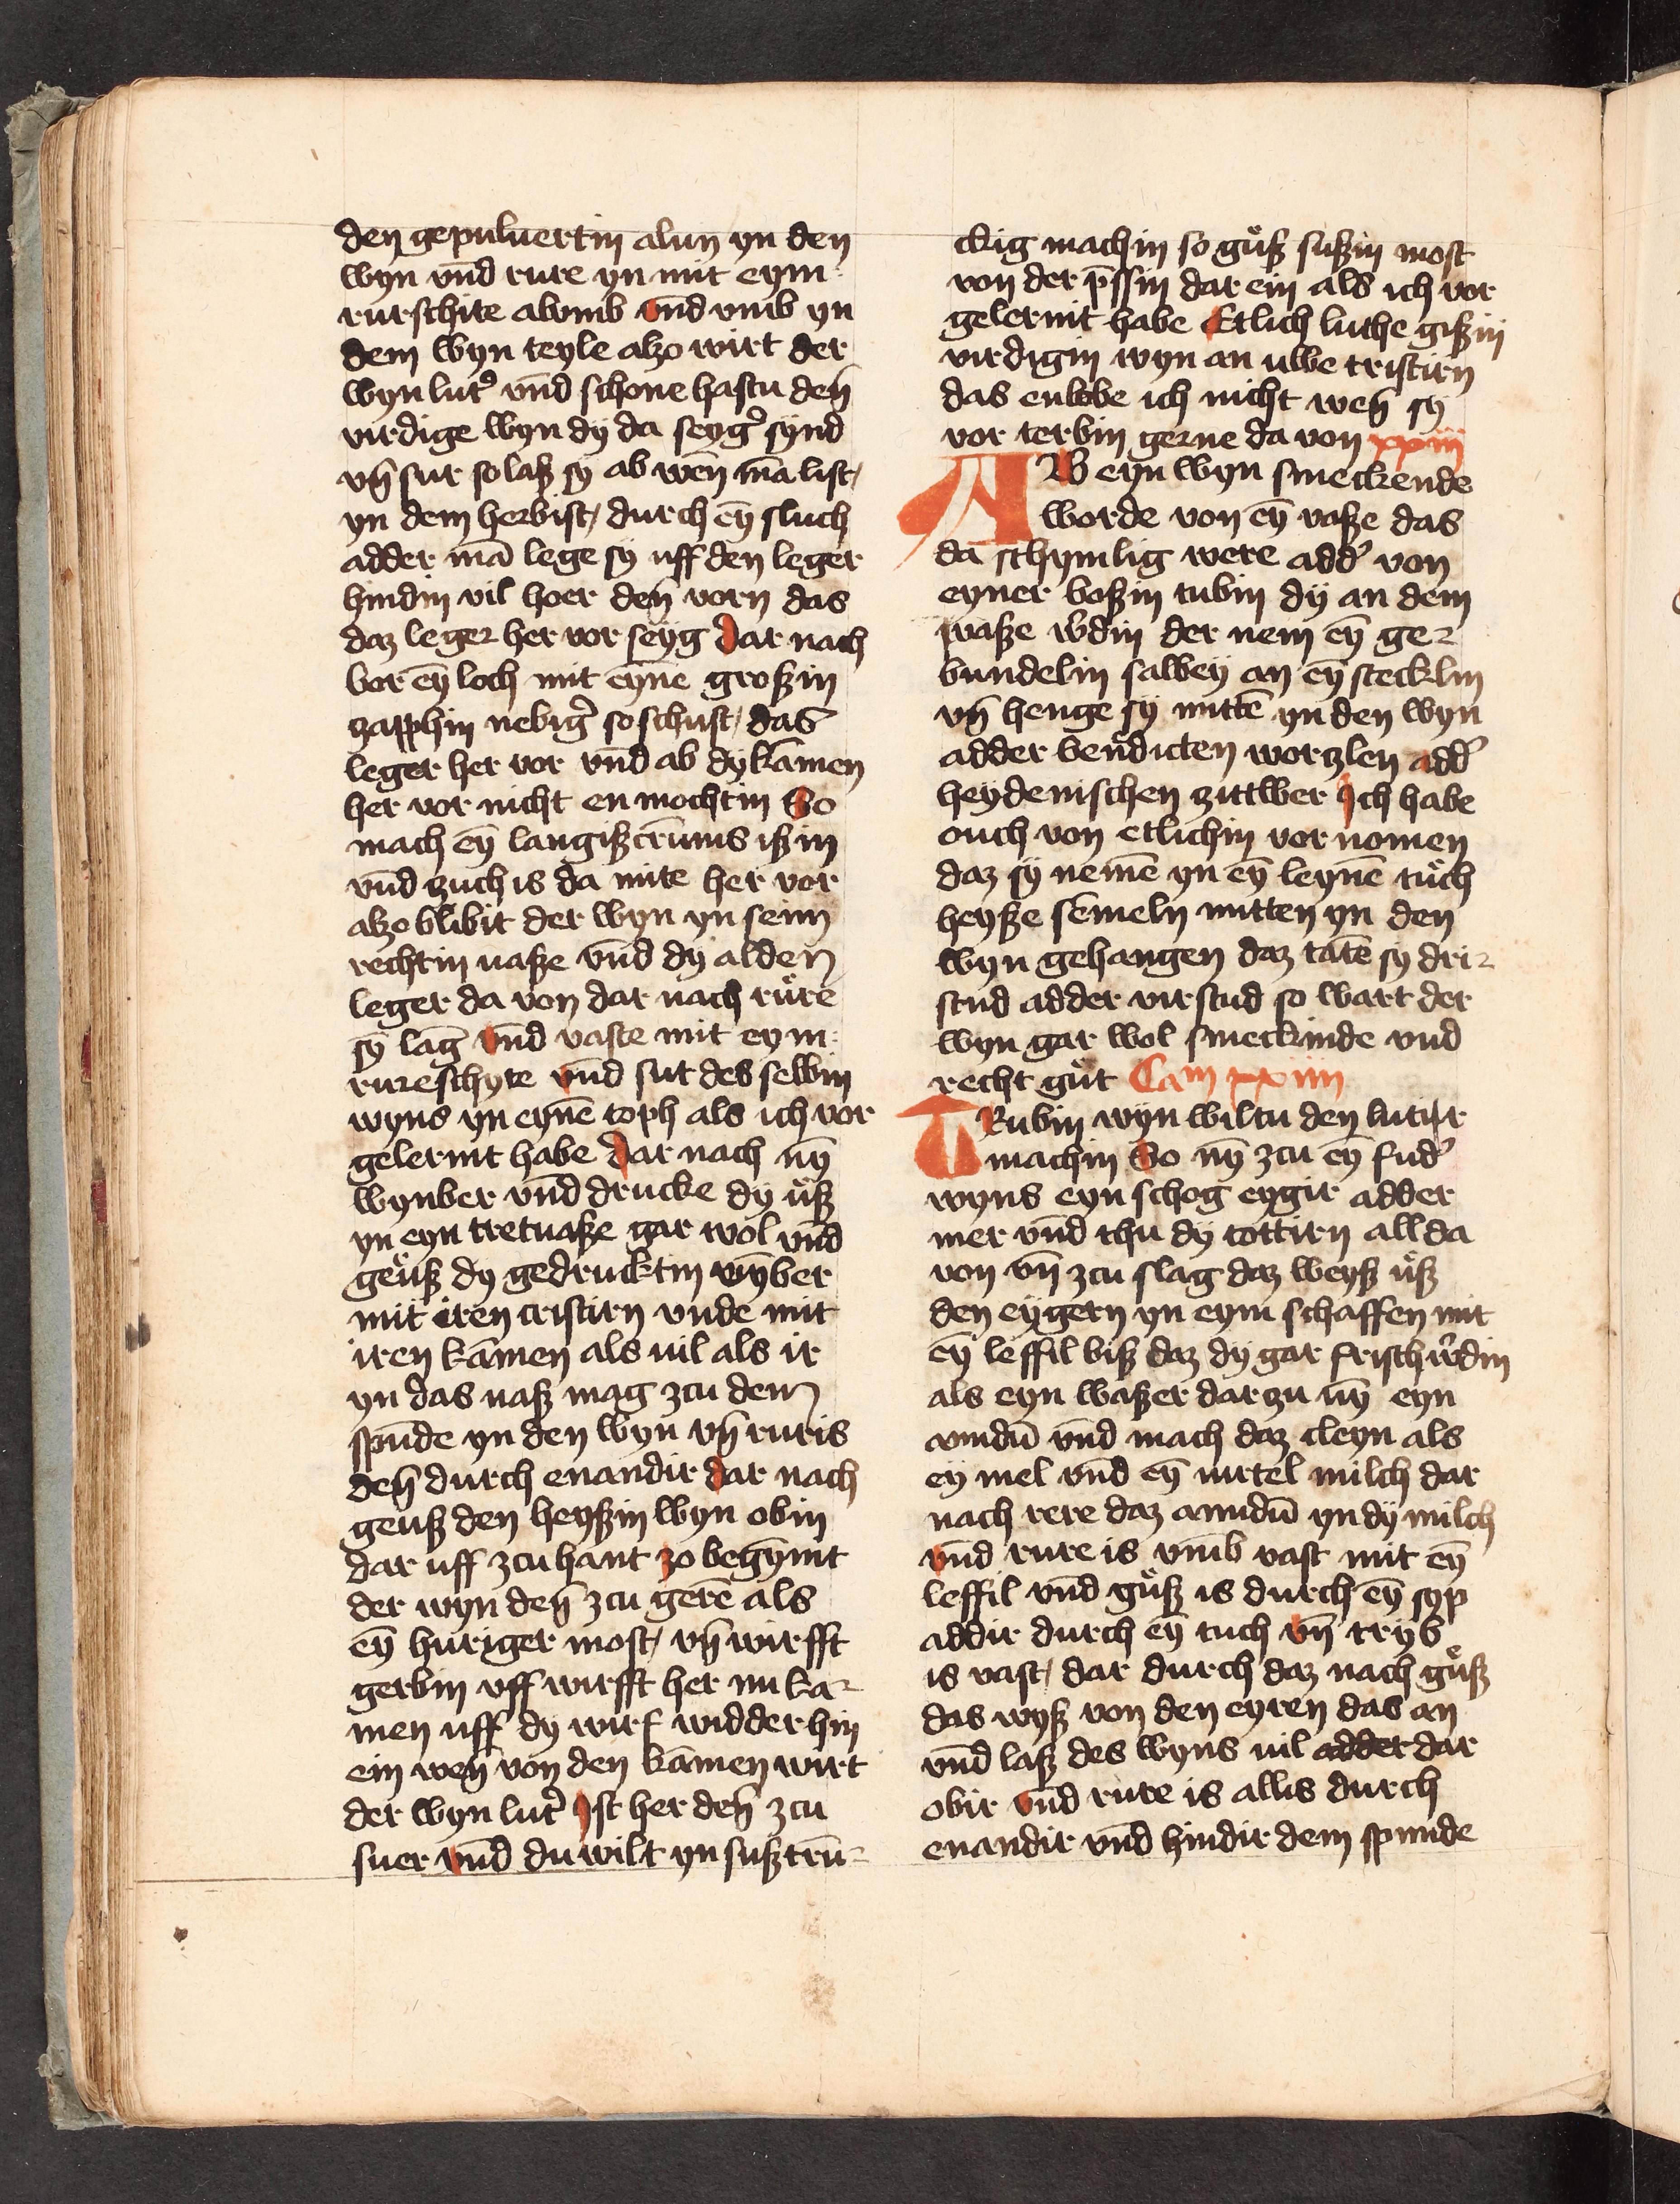 den gepuluertin alun yn den
wyn vnd rure yn mit eym
rurschite alvmb vnd vmb yn
dem wyn teyle alzo wirt der
wyn lutꝰ vnd schone hastu den̄
virdige wyn dÿ da seygꝰ synd
vn̄ sur so laß sÿ ab wen̄ ma list
yn dem herbist durch eÿ sluch
adder mā lege sÿ uff den leger
hindin vil hoer den̄ vorn das
daz leger her vor seÿg dar nach
bor eȳ loch mit eyne großin
zapphin nebigꝰ so schust das
leger her vor vnd ab dÿ kamen
her vor nicht en mochtin So
mach eȳ langiß crums ißin
vnd zuch is da mite her vor
alzo blibit der wyn yn seim
rechtin uaße vnd dÿ alden
leger da von dar nach růre
sÿ lag vnd vaste mit eym
rureschyte vnd sut des selbin
wyns yn eynē toph als ich vor
gelernit habe dar nach nȳ
wynber vnd drucke dÿ ůß
yn eyn tretuaße gar wol vnd
geůß dÿ gedrucktin wȳber
mit iren tristirn vnde mit
iren kamen als uil als ir
yn das uaß mag zcu dem
spūde yn den wyn vn̄ ruris
den̄ durch enandir dar nach
geuß den heyßin wyn obin
dar uff zcu hant zo begȳnit
der wyn den̄ zcu gerē als
eȳ huriger most vn̄ wirfft
gerbin vff wirfft her nu ka-
men uff dÿ wirf widder hin
ein wen̄ von den kamen wirt
der wyn lutꝰ Ist her den̄ zcu
suer vnd du wilt yn suß trū-
ckig machin so gůß sußin most
von der p̄ssin dar ein als ich vor
gelernit habe Etlich luthe gißin
virdigin wyn an ulbe tristirn
das enlobe ich nicht wen̄ sÿ
vor terbin gerne da von xxiij
AB eyn wyn smeckende
worde von eȳ vaße das
da schymlig were addꝰ von
eyner boßin tubin dÿ an dem
waße wdin der nem eȳ ge-
bundelin salbeÿ an eȳ stecklin
vn̄ henge sÿ mittē yn den wyn
adder bendicten worzlen addꝰ
heÿdenischen zittwer Ich habe
ouch von etlichin vor nomen
daz sÿ nemē yn eȳ leynē tůch
heyße semeln mitten yn den
wyn gehangen daz tatē sÿ dri-
stud adder virstud so wart der
wyn gar wol smeckinde vnd
recht gůt Cam xxiiii
TRubin wÿn wiltu den lutter
machin So nȳ zcu eȳ fudꝰ
wyns eyn schog eygir adder
mer vnd thu dÿ tottirn all da
von vn̄ zcu slag daz weyß ůß
den eÿgern yn eym schaffen mit
eȳ leffil biß daz dÿ gar frisch wꝰdin
als eyn waßer dar zu nȳ eyn
amidū vnd mach daz cleyn als
eÿ mel vnd eȳ uirtel milch dar
nach rere daz amidū yn dÿ milch
vnd rure is vmb vast mit eȳ
leffil vnd gůß is durch eȳ syp
addir durch eȳ tuch vn̄ tryb
is vast dar durch daz nach gůß
das wyß von den eyren das an
vnd laß des wyns uil adder dar
obir vnd rure is allis durch
enandir vnd hindir dem spunde